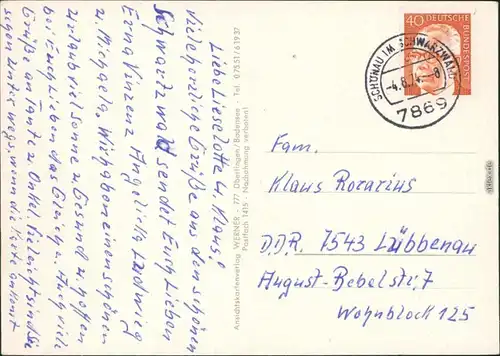 Liebe Lieselotte u. Klaus!
Viele herzige Grüße aus dem schönen
Schwarzwald sendet Euch Lieben
Erna Vinzenz Angelika Ludwig
u. Michaela. Wir haben einen schönen
Urlaub viel Sonne u. Gesund u. hoffen
bei Euch Lieben das Gleiche. Auch viele
Grüße an Tante u. Onkel. Vielleicht sind Sie
schon unterwegs, wenn die Karte ankommt
Ansichtskartenverlag WERNER · 777 Überlingen/Bodensee · Tel. 07551/61937
Postfach 1415 · Nachahmung verboten!
40 DEUTSCHE
BUNDESPOST
SCHÖNAU IM SCHWARZWALD
-4.6.74.-8
7869
Fam.
Klaus Rorarius
DDR. 7543 Lübbenau
August-Bebelstr. 7
Wohnblock 125